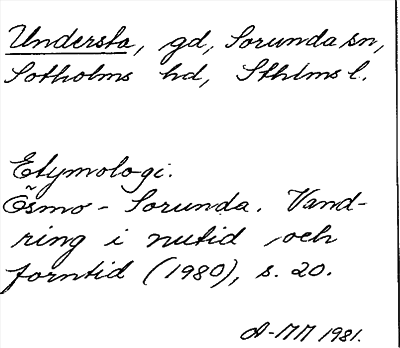 Understa, gd, Sorunda sn,
Sotholms hd, Sthlms l.
Etymologi.
Ösmo - Sorunda. Vand-
ring i nutid och
forntid (1980), s. 20.
A-MM 1981.